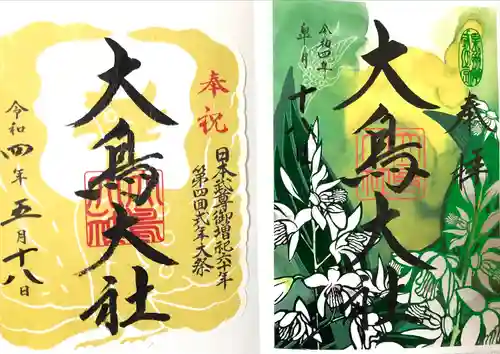 奉祝
日本武尊御増祀六十年
第四回式年大祭
大鳥大社
令和四年
五月十八日
奉拝
大鳥大社
令和四年
皐月
十八日